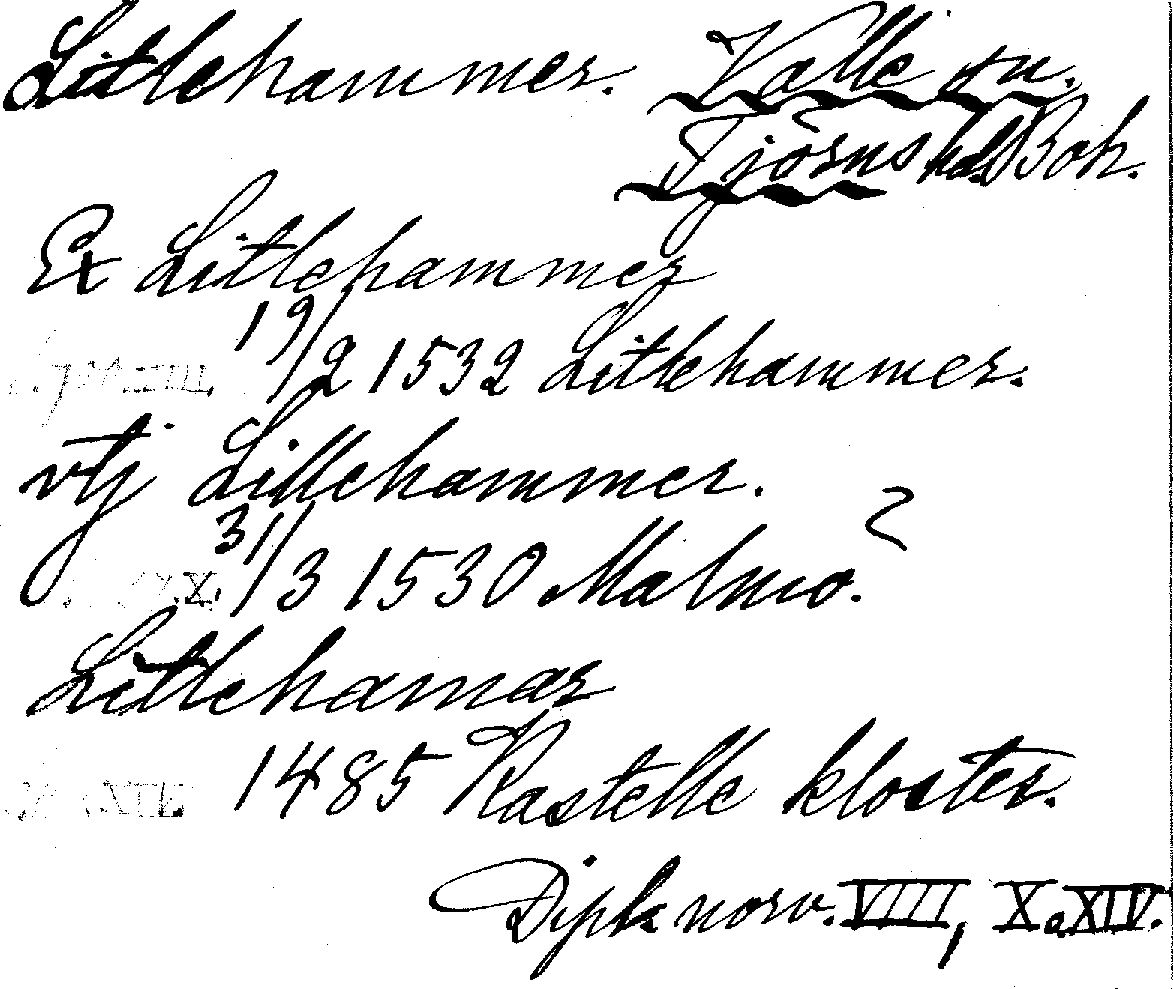 Litlehammer. Valle sn.
Tjörns hd. Boh.
Ex Litlehammer
19/2 1532 Litlehammer.
vtj Lillehammer.
31/3 1530 Malmo.
Litlehamar
1485 Kastelle kloster.
Dipl. norv. VIII, X o. XIV.